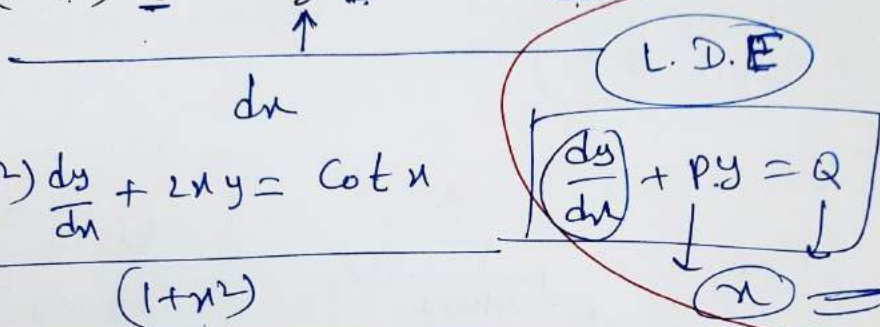 L. D. E
dx
²) dy/dx + 2xy = Cot x
dy/dx + P.y = Q
(1+x²)
x